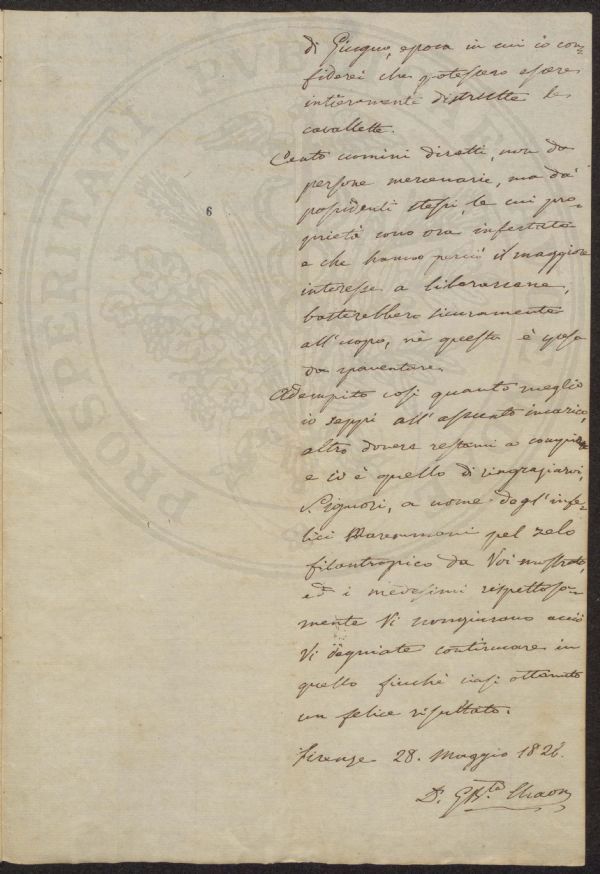 di Giugno, epoca in cui io con=
fiderei che potessero essere
intieramente distrutte le
cavallette.
Cento uomini diretti, non da
persone mercenarie, ma da'
possidenti stessi, le cui pro=
prietà sono ora infestate
e che hanno perciò il maggiore
interesse a liberarsene,
basterebbero sicuramente
all'uopo, nè questa è spesa
da spaventare.
Adempito così quanto meglio
io seppi all'assunto incarico,
altro dovere restami a compiere
e ciò è quello di ringraziarvi,
Signori, a nome degl'infe=
lici Maremmani pel zelo
filantropico da Voi mostrato,
ed i medesimi rispettosa=
mente Vi scongiurano acciò
Vi degniate continuare in
quello finchè siasi ottenuto
un felice risultato.
Firenze 28. Maggio 1826.
D. G.Bta
6
PROSPERITATI PVBLICAE